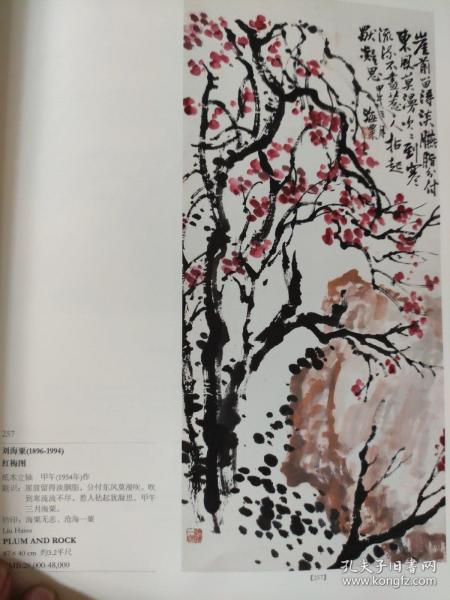 崖前留得淡臙脂分付
東風莫漫吹〻到寒
流流不盡惹人拈起
凝思甲午三月海粟
257
刘海粟(1896-1994)
红梅图
纸本立轴 甲午(1954年)作
题识：崖前留得淡胭脂，分付东风莫漫吹。吹
到寒流流不尽，惹人拈起犹凝思。甲午
三月海粟。
钤印：海粟无恙、沧海一粟
Liu Haisu
PLUM AND ROCK
87×40 cm 约3.2平尺
RMB:28,000-48,000
【257】
孔夫子旧书网